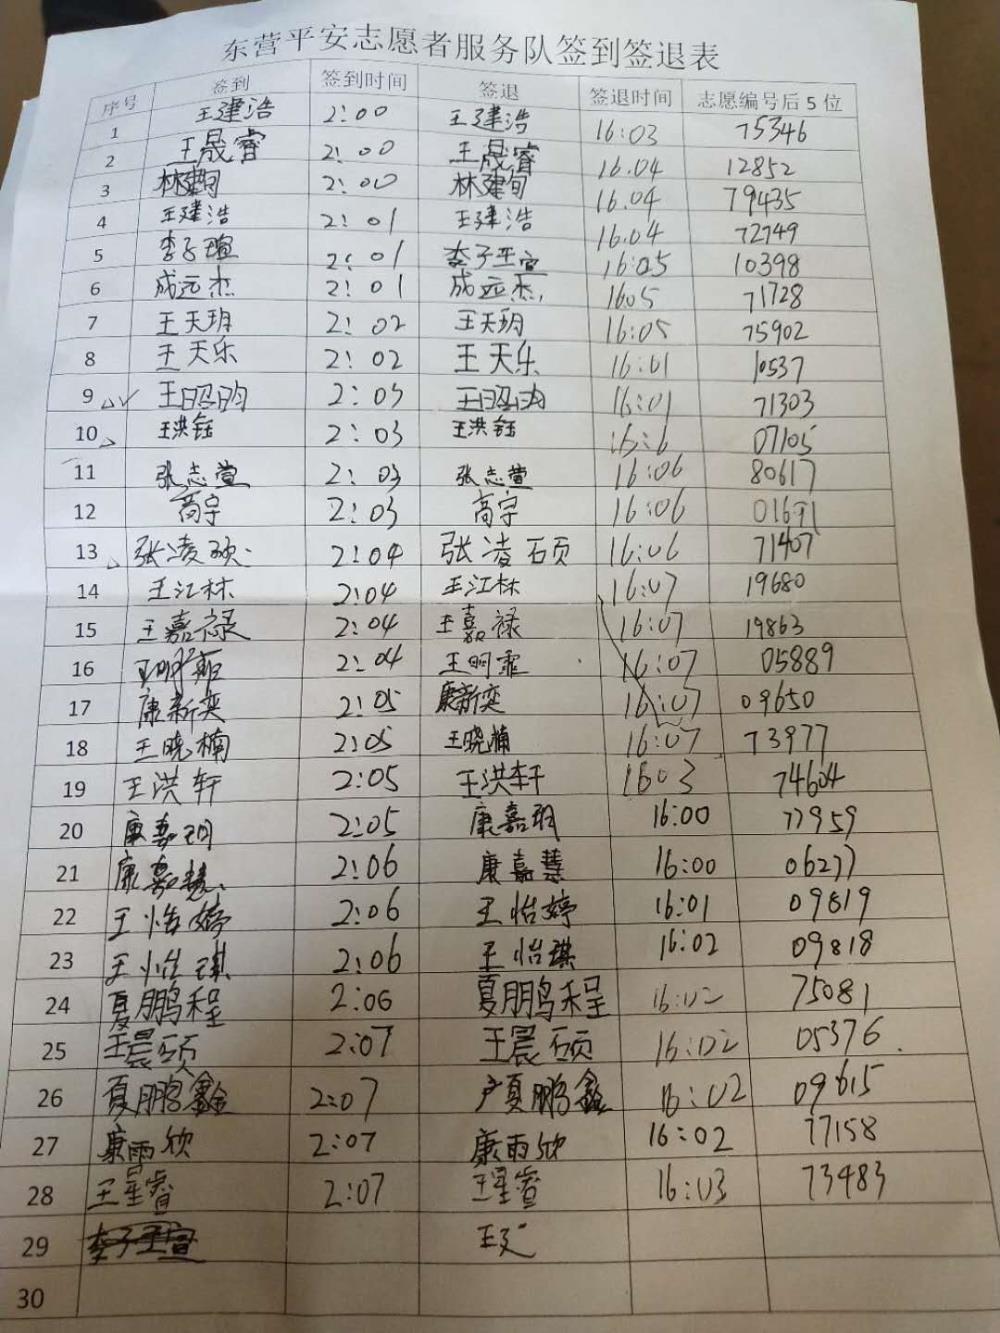 东营平安志愿者服务队签到签退表
序号 签到 签到时间 签退 签退时间 志愿编号后5位
1 王建浩 2:00 王建浩 16:03 75346
2 王晟睿 2:00 王晟睿 16.04 12852
3 林建旬 2:00 林建旬 16.04 79435
4 王建浩 2:01 王建浩 16.04 72749
5 李子瑄 2:01 李子瑄 16:05 10398
6 成远杰 2:01 成远杰 1605 71728
7 王天玥 2:02 王天玥 16:05 75902
8 王天乐 2:02 王天乐 16:01 10537
9 王昭昀 2:03 王昭昀 16:01 71303
10 王洪钰 2:03 王洪钰 07105
11 张志萱 2:03 张志萱 16:06 80617
12 高宇 2:03 高宇 16:06
13 张凌硕 2:04 张凌硕 16:06 71407
14 王江林 2:04 王江林 16:07 19680
15 王嘉禄 2:04 王嘉禄 16:07 19863
16 2:04 16:07 05889
17 康新奕 2:05 康新奕 16:07 09650
18 王晓楠 2:05 王晓楠 16:07 73977
19 王洪轩 2:05 王洪轩 1603 74604
20 康嘉玥 2:05 康嘉玥 16:00 77959
21 康嘉慧 2:06 康嘉慧 16:00 06277
22 王怡婷 2:06 王怡婷 16:01 09819
23 王怡琪 2:06 王怡琪 16:02 09818
24 夏鹏程 2:06 夏鹏程 16:02 75081
25 王晨硕 2:07 王晨硕 16:02 05376
26 夏鹏鑫 2:07 夏鹏鑫 16:02 09615
27 康雨欣 2:07 康雨欣 16:02 77158
28 王星睿 2:07 王星睿 16:03 73483
29
30